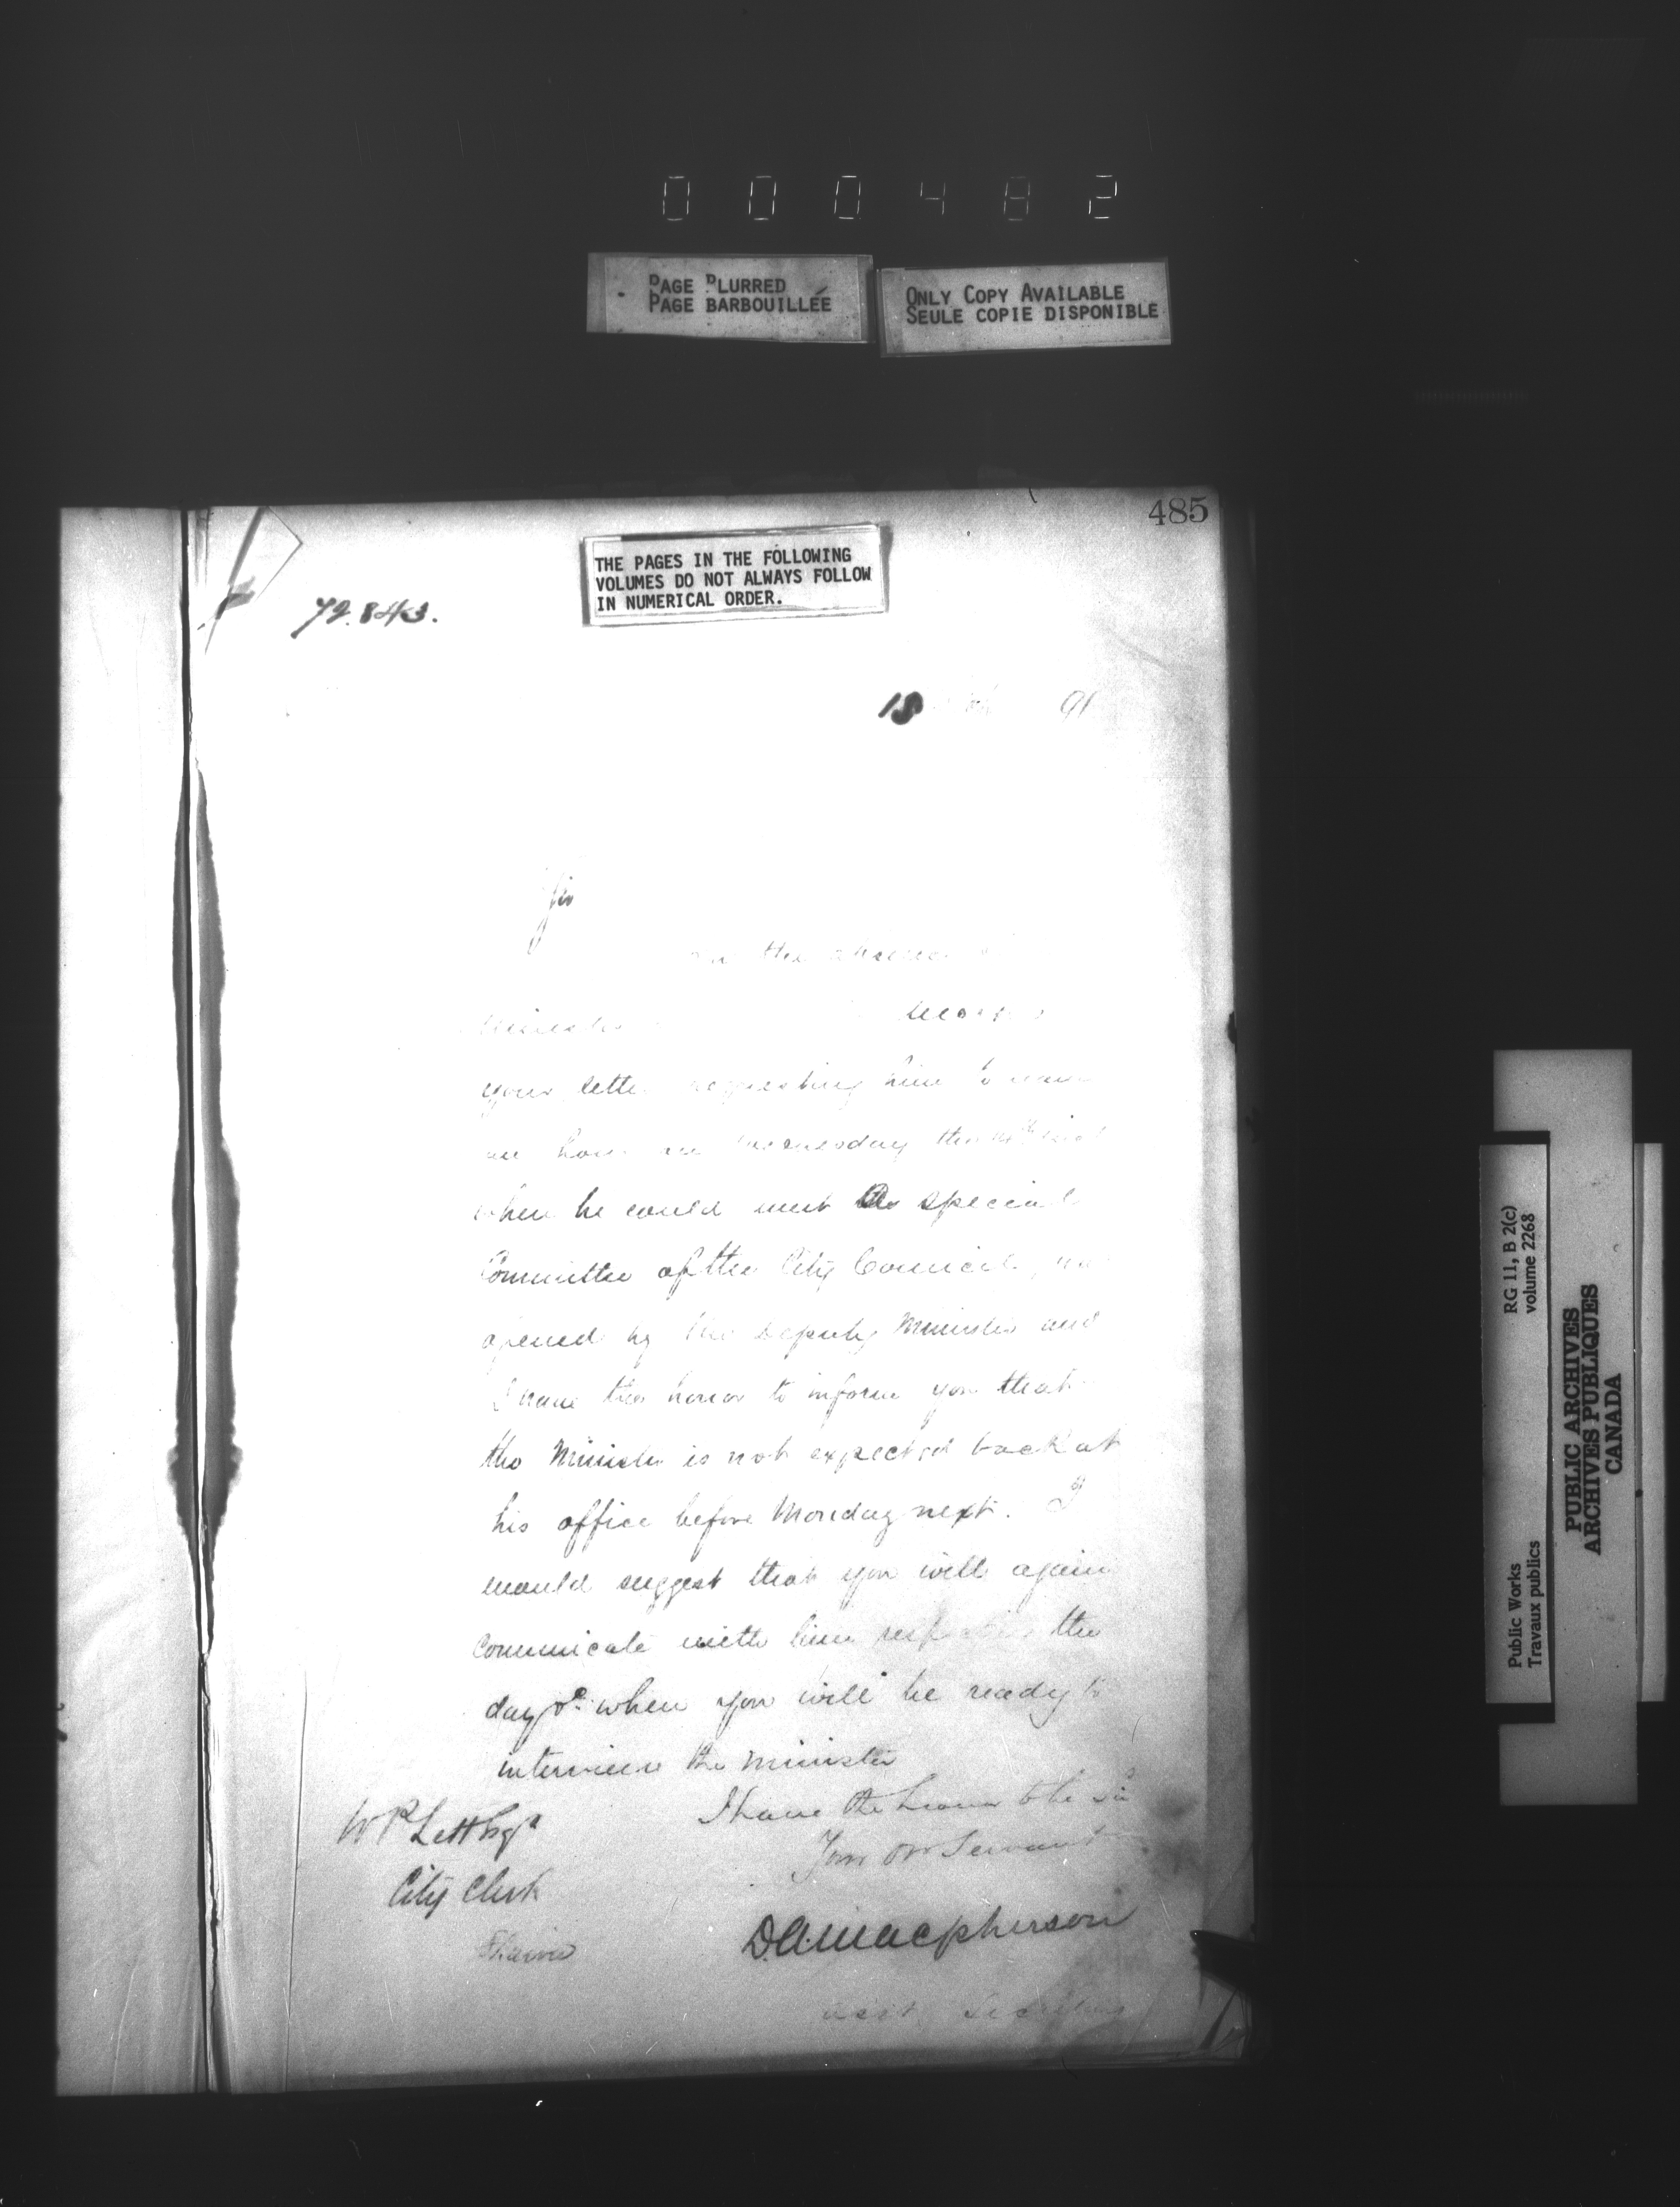 000482
PAGE BLURRED
PAGE BARBOUILLÉE
ONLY COPY AVAILABLE
SEULE COPIE DISPONIBLE
485
THE PAGES IN THE FOLLOWING
VOLUMES DO NOT ALWAYS FOLLOW
IN NUMERICAL ORDER.
72.843.
18 91
Sir
In the absence
Minister
your letter requesting him to name
an hour on Wednesday the inst
when he could meet a special
Committee of the City Council, was
opened by the Deputy Minister and
I have the honor to inform you that
the Minister is not expected back at
his office before Monday next. I
would suggest that you will again
communicate with him respecting the
day &c when you will be ready to
interview the Minister
I have the honor to be Sir
Your Ob Servant
W P Lett Esqr
City Clerk
Ottawa
D.A. Macpherson
Asst Secretary
RG 11, B 2(c)
volume 2268
Public Works
Travaux publics
PUBLIC ARCHIVES
ARCHIVES PUBLIQUES
CANADA